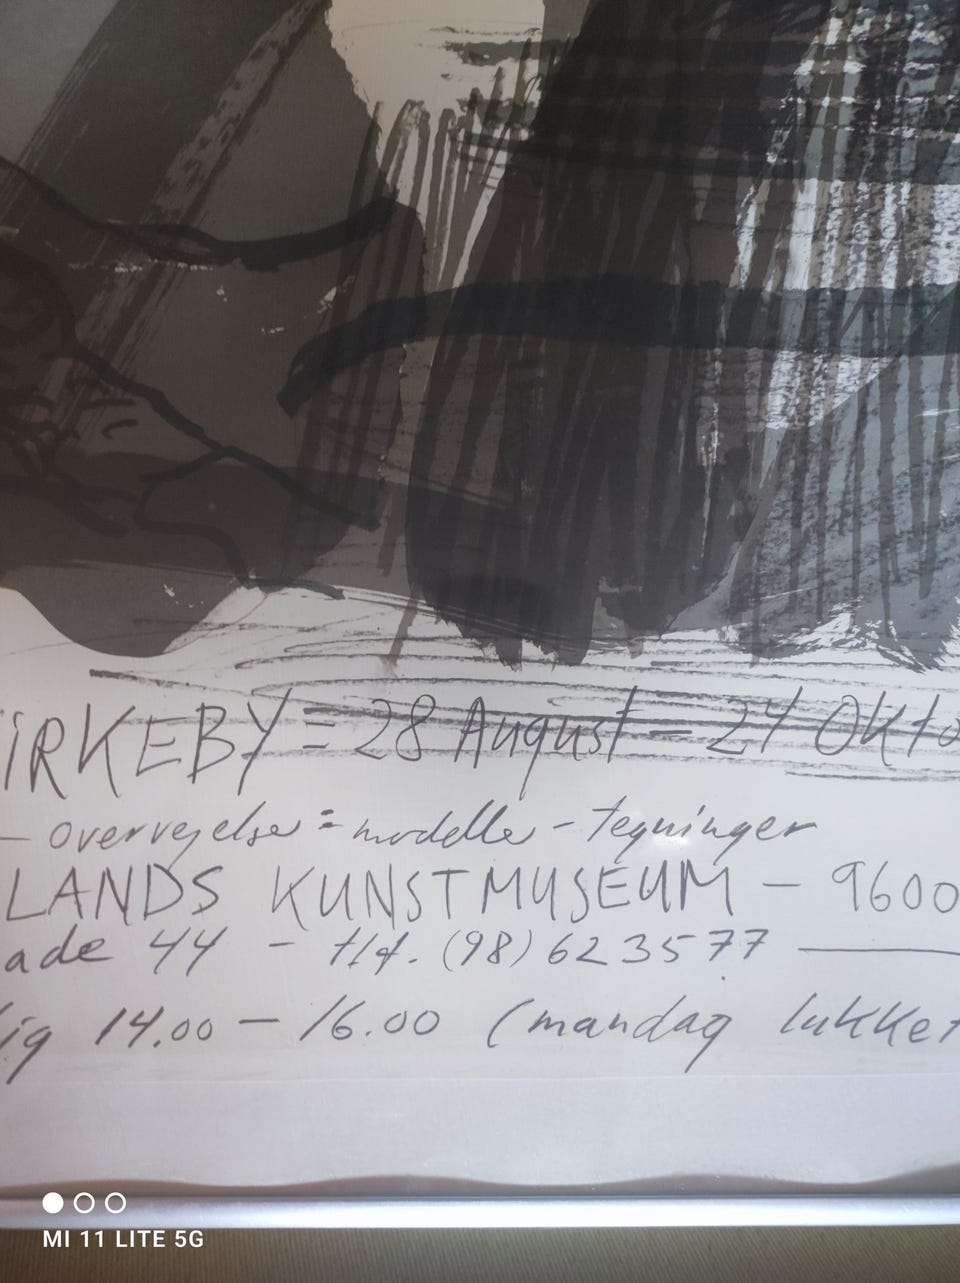 iRKEBY = 28 August = 24 Okto
- overvejelse = modeller - tegninger
LANDS KUNSTMUSEUM - 9600
ade 44 - tlf. (98) 623577
lig 14.00 - 16.00 (mandag lukket
MI 11 LITE 5G